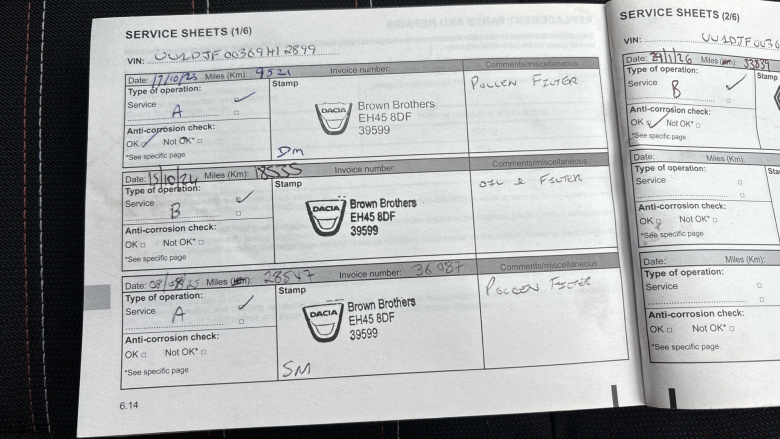 SERVICE SHEETS (1/6)
VIN: UU1DJF00369412899
Date: 17/10/23 Miles (Km): 9521 Invoice number: Comments/miscellaneous
Type of operation:
Service
A
Anti-corrosion check:
OK Not OK*
*See specific page
Stamp
DACIA
Brown Brothers
EH45 8DF
39599
Dm
POLLEN FILTER
Date: 15/10/24 Miles (Km): 18535 Invoice number: Comments/miscellaneous
Type of operation:
Service
B
Anti-corrosion check:
OK Not OK*
*See specific page
Stamp
DACIA
Brown Brothers
EH45 8DF
39599
OIL & FILTER
Date: 08/08/25 Miles (Km): 28547 Invoice number: 36087 Comments/miscellaneous
Type of operation:
Service
A
Anti-corrosion check:
OK Not OK*
*See specific page
Stamp
DACIA
Brown Brothers
EH45 8DF
39599
SM
POLLEN FILTER
6.14
REPLACEMENT PARTS AND REPAIRS
SERVICE SHEETS (2/6)
VIN: UU1DJF0036
Date: 29/1/26 Miles (Km): 33039
Type of operation:
Service
B
Anti-corrosion check:
OK Not OK*
*See specific page
Stamp
Date: Miles (Km):
Type of operation:
Service
Anti-corrosion check:
OK Not OK*
*See specific page
Date: Miles (Km):
Type of operation:
Service
Anti-corrosion check:
OK Not OK*
*See specific page